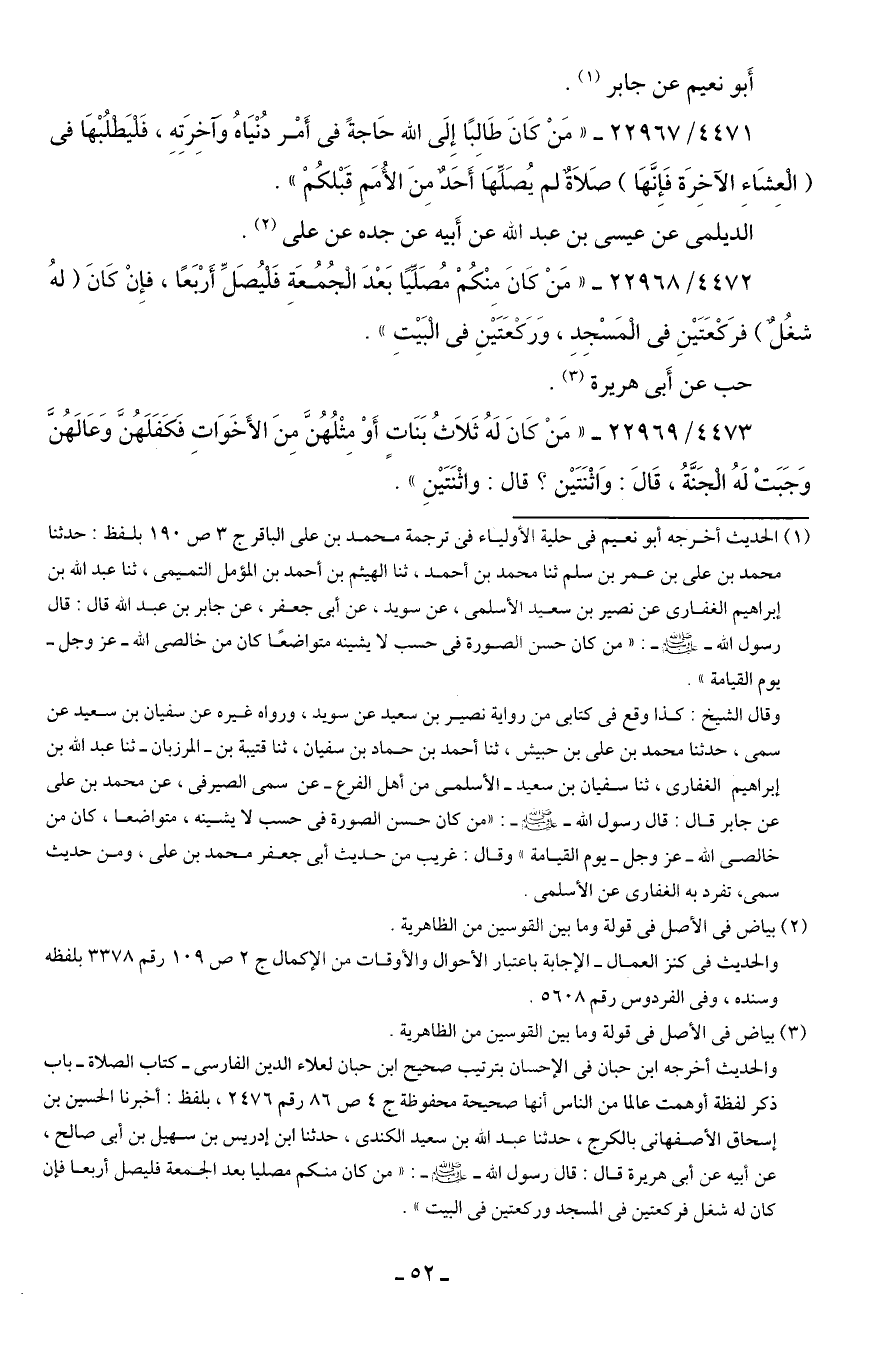 أَبو نعيم عن جابر (١) .
٢٢٩٦٧/٤٤٧١ ـ « مَنْ كَانَ طَالبًا إِلَى الله حَاجةً فى أَمْر دُنْيَاهُ وآخرَته ، فَلْيَطْلُبْهَا فى
( الْعِشَاءِ الآخرَة فَإنَّهَا ) صَلَاةٌ لم يُصَلِّهَا أَحَدٌ منَ الأُمَم قَبْلَكُمْ » .
الديلمى عن عيسى بن عبد الله عن أَبيه عن جده عن على (٢) .
٢٢٩٦٨/٤٤٧٢ ـ « مَنْ كَانَ منْكُمْ مُصَلِّيًا بَعْدَ الْجُمُعَة فَلْيُصَلِّ أَرْبَعًا ، فإنْ كَانَ ( لهُ
شغُلٌ ) فركَعْتَيْنِ فى الْمَسْجدِ ، وَرَكْعَتَيْنِ فى الْبَيْتِ » .
حب عن أَبى هريرة (٣) .
٢٢٩٦٩/٤٤٧٣ ـ « مَنْ كَانَ لَهُ ثَلَاثُ بَنَاتٍ أَوْ مثْلُهُنَّ منَ الأَخَوَاتِ فَكَفَلَهُنَّ وَعَالَهُنَّ
وَجَبَتْ لَهُ الْجَنَّةُ ، قَالَ : وَاثْنَتَيْن ؟ قال : واثْنَتَيْنِ » .
(١) الحديث أخرجه أبو نعيم فى حلية الأولياء فى ترجمة محمد بن على الباقر ج ٣ ص ١٩٠ بلفظ : حدثنا
محمد بن على بن عمر بن سلم ثنا محمد بن أحمد ، ثنا الهيثم بن أحمد بن المؤمل التميمى ، ثنا عبد الله بن
إبراهيم الغفارى عن نصير بن سعيد الأسلمى ، عن سويد ، عن أبى جعفر ، عن جابر بن عبد الله قال : قال
رسول الله ـ ﷺ ـ : « من كان حسن الصورة فى حسب لا يشينه متواضعًا كان من خالصى الله ـ عز وجل ـ
يوم القيامة » .
وقال الشيخ : كذا وقع فى كتابى من رواية نصير بن سعيد عن سويد ، ورواه غيره عن سفيان بن سعيد عن
سمى ، حدثنا محمد بن على بن حبيش ، ثنا أحمد بن حماد بن سفيان ، ثنا قتيبة بن ـ المرزبان ـ ثنا عبد الله بن
إبراهيم الغفارى ، ثنا سفيان بن سعيد ـ الأسلمى من أهل الفرع ـ عن سمى الصيرفى ، عن محمد بن على
عن جابر قال : قال رسول الله ـ ﷺ ـ : «من كان حسن الصورة فى حسب لا يشينه ، متواضعا ، كان من
خالصى الله ـ عز وجل ـ يوم القيامة » وقال : غريب من حديث أبى جعفر محمد بن على ، ومن حديث
سمى، تفرد به الغفارى عن الأسلمى .
(٢) بياض فى الأصل فى قولة وما بين القوسين من الظاهرية .
والحديث فى كنز العمال ـ الإجابة باعتبار الأحوال والأوقات من الإكمال ج ٢ ص ١٠٩ رقم ٣٣٧٨ بلفظه
وسنده ، وفى الفردوس رقم ٥٦٠٨ .
(٣) بياض فى الأصل فى قولة وما بين القوسين من الظاهرية .
والحديث أخرجه ابن حبان فى الإحسان بترتيب صحيح ابن حبان لعلاء الدين الفارسى ـ كتاب الصلاة ـ باب
ذكر لفظة أوهمت عالما من الناس أنها صحيحة محفوظة ج ٤ ص ٨٦ رقم ٢٤٧٦ ، بلفظ : أخبرنا الحسين بن
إسحاق الأصفهانى بالكرج ، حدثنا عبد الله بن سعيد الكندى ، حدثنا ابن إدريس بن سهيل بن أبى صالح ،
عن أبيه عن أبى هريرة قال : قال رسول الله ـ ﷺ ـ : « من كان منكم مصليا بعد الجمعة فليصل أربعا فإن
كان له شغل فركعتين فى المسجد وركعتين فى البيت » .
ـ ٥٢ ـ